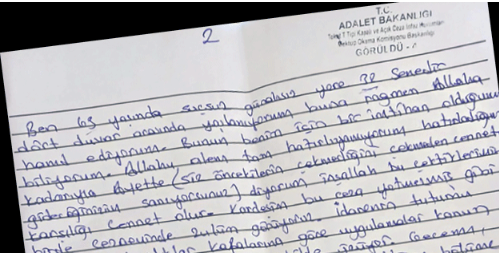 2
T.C.
ADALET BAKANLIĞI
Tipi Kapalı ve Açık Ceza İnfaz Kurumları
Mektup Okuma Komisyonu Başkanlığı
GÖRÜLDÜ -
Ben 63 yaşında suçsuz günahsız yere 32 Senedir
dört duvar arasında yaşıyorum buna rağmen Allaha
hamd ediyorum. Bunun benim için bir imtihan olduğunu
biliyorum. Allahu alem tam hatırlayamıyorum hatırladığım
kadarıyla Ayette (siz öncekilerin çekmediğini çekmeden cennete
gideceğinizin sanıyorsunuz) diyorum inşallah bu çektiklerimin
karşılığı cennet olur. Kardeşim bu ceza yetmezmiş gibi
birde cezaevinde zulüm görüyorum. İdarenin tutumu
kafalarına göre uygulamalar kanun